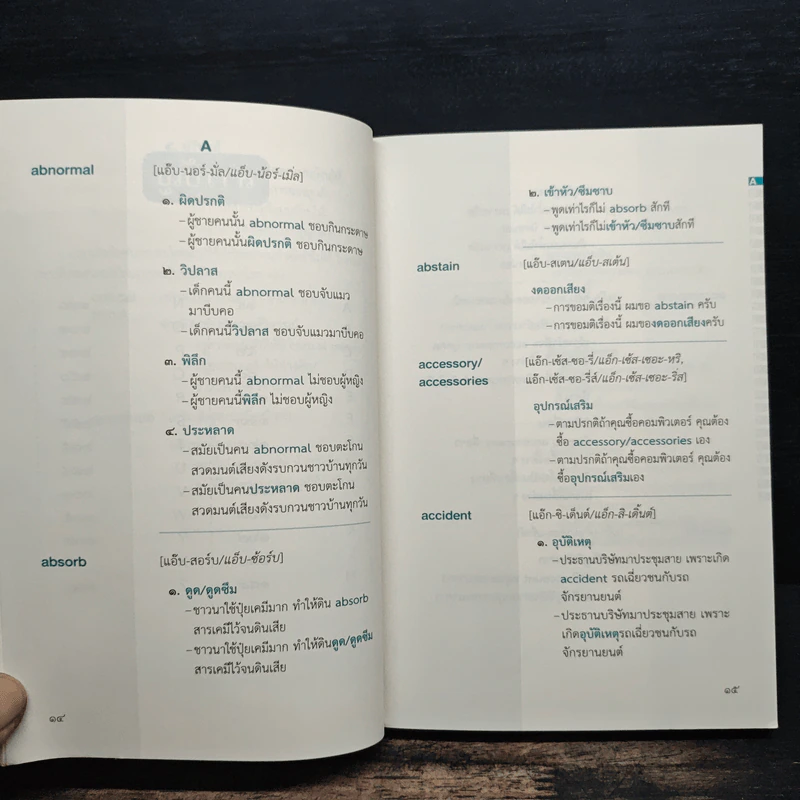 A
abnormal
[แอ๊บ-นอร์-มั่ล/แอ็บ-น้อร์-เมิ่ล]
๑. ผิดปรกติ
–ผู้ชายคนนั้น abnormal ชอบกินกระดาษ
–ผู้ชายคนนั้นผิดปรกติ ชอบกินกระดาษ
๒. วิปลาส
–เด็กคนนี้ abnormal ชอบจับแมว
มาบีบคอ
–เด็กคนนี้วิปลาส ชอบจับแมวมาบีบคอ
๓. พิลึก
–ผู้ชายคนนี้ abnormal ไม่ชอบผู้หญิง
–ผู้ชายคนนี้พิลึก ไม่ชอบผู้หญิง
๔. ประหลาด
–สมัยเป็นคน abnormal ชอบตะโกน
สวดมนต์เสียงดังรบกวนชาวบ้านทุกวัน
–สมัยเป็นคนประหลาด ชอบตะโกน
สวดมนต์เสียงดังรบกวนชาวบ้านทุกวัน
absorb
[แอ๊บ-สอร์บ/แอ็บ-ซ้อร์บ]
๑. ดูด/ดูดซึม
–ชาวนาใช้ปุ๋ยเคมีมาก ทำให้ดิน absorb
สารเคมีไว้จนดินเสีย
–ชาวนาใช้ปุ๋ยเคมีมาก ทำให้ดินดูด/ดูดซึม
สารเคมีไว้จนดินเสีย
๑๔
A
๒. เข้าหัว/ซึมซาบ
–พูดเท่าไรก็ไม่ absorb สักที
–พูดเท่าไรก็ไม่เข้าหัว/ซึมซาบสักที
abstain
[แอ๊บ-สเตน/แอ็บ-สเต้น]
งดออกเสียง
–การขอมติเรื่องนี้ ผมขอ abstain ครับ
–การขอมติเรื่องนี้ ผมของดออกเสียงครับ
accessory/
accessories
[แอ๊ก-เซ้ส-ซอ-รี่/แอ็ก-เซ้ส-เซอะ-หริ,
แอ๊ก-เซ้ส-ซอ-รี่ส์/แอ็ก-เซ้ส-เซอะ-ริส]
อุปกรณ์เสริม
–ตามปรกติถ้าคุณซื้อคอมพิวเตอร์ คุณต้อง
ซื้อ accessory/accessories เอง
–ตามปรกติถ้าคุณซื้อคอมพิวเตอร์ คุณต้อง
ซื้ออุปกรณ์เสริมเอง
accident
[แอ๊ก-ซิ-เด็นต์/แอ็ก-สิ-เดิ้นต์]
๑. อุบัติเหตุ
–ประธานบริษัทมาประชุมสาย เพราะเกิด
accident รถเฉี่ยวชนกับรถ
จักรยานยนต์
–ประธานบริษัทมาประชุมสาย เพราะ
เกิดอุบัติเหตุรถเฉี่ยวชนกับรถ
จักรยานยนต์
๑๕